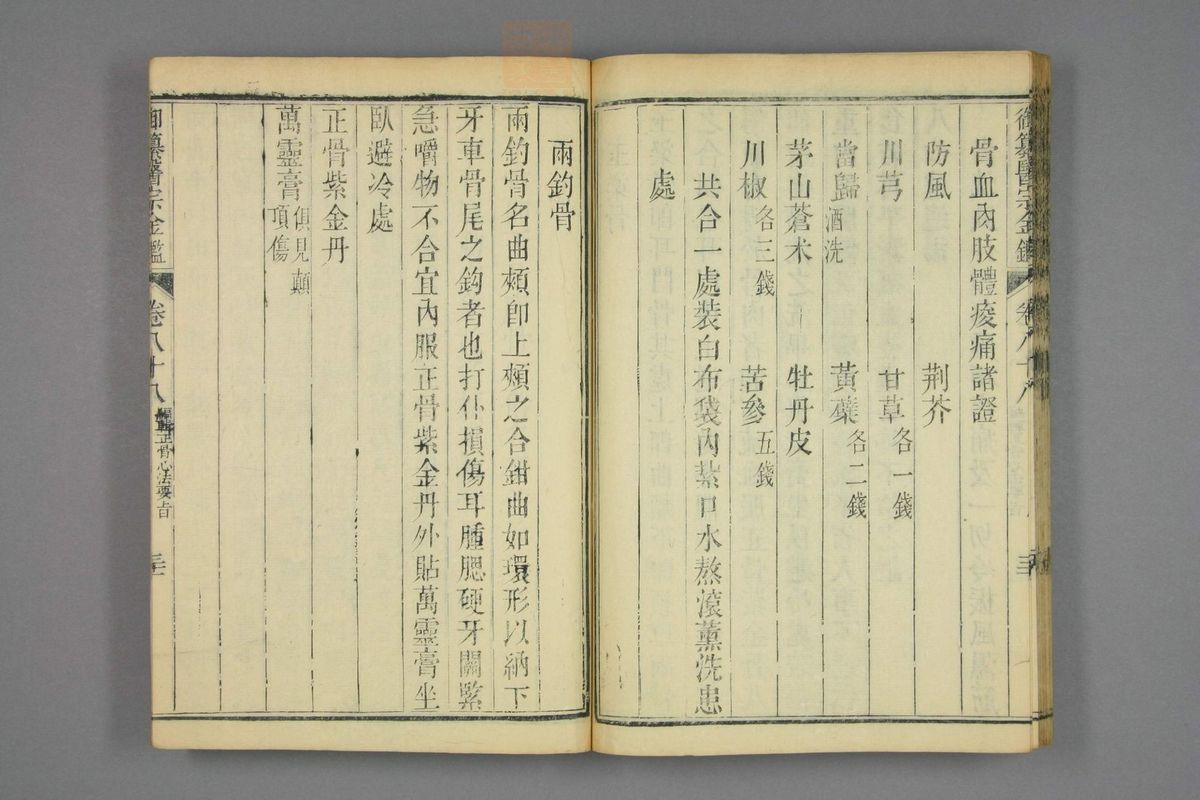 御纂醫宗金鑑 卷八十八
骨血肉肢體痠痛諸證
防風 荆芥
川芎 甘草各一錢
當歸酒洗 黃蘗各二錢
茅山蒼术 牡丹皮
川椒各三錢 苦參五錢
共合一處裝白布袋內紮口水熬滾薰洗患
處
兩釣骨
兩釣骨名曲頰卽上頰之合鉗曲如環形以納下
牙車骨尾之鈎者也打仆損傷耳腫腮硬牙關緊
急嚼物不合宜內服正骨紫金丹外貼萬靈膏坐
臥避冷處
正骨紫金丹
萬靈膏俱見巓頂傷
御纂醫宗金鑑 卷八十八 編輯正骨心法要旨 三